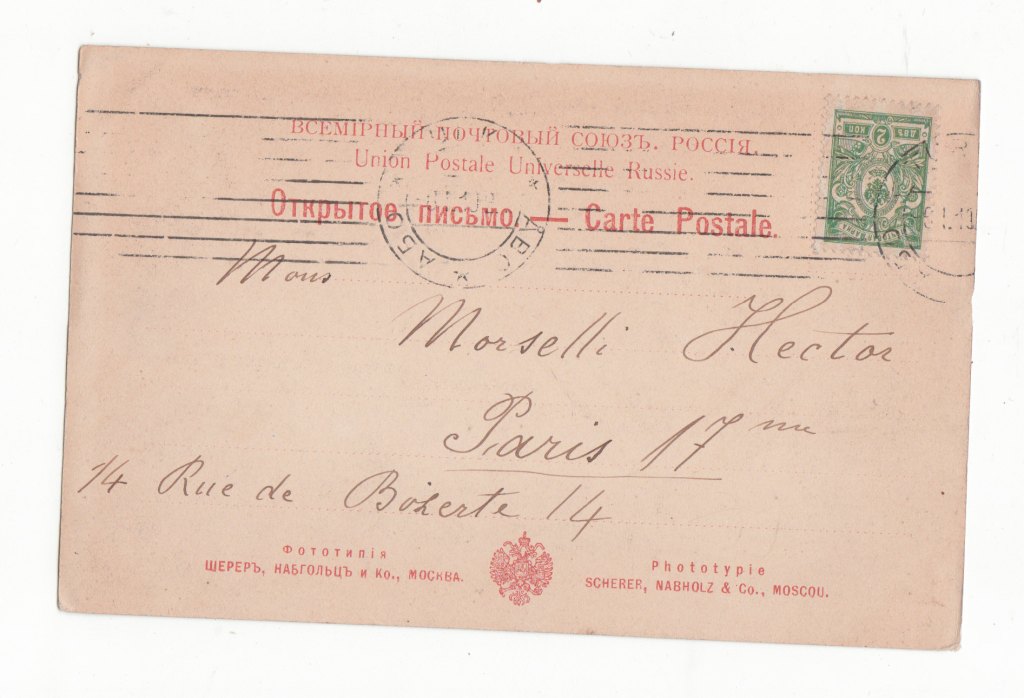 ВСЕМІРНЫЙ ПОЧТОВЫЙ СОЮЗЪ. РОССІЯ.
Union Postale Universelle Russie.
Открытое письмо. — Carte Postale.
2
КОП
ДВѢ
АБО
АВО
Mons
Morselli Hector
Paris 17 me
14 Rue de Bizerte 14
Фототипія
ШЕРЕРЪ, НАБГОЛЬЦЪ и Ко., МОСКВА.
Phototypie
SCHERER, NABHOLZ & Co., MOSCOU.